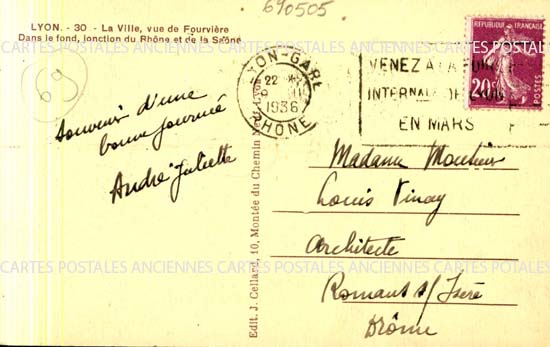 690505
LYON. - 30 - La Ville, vue de Fourvière
Dans le fond, jonction du Rhône et de la Saône
69
Souvenir d'une
bonne journée
André Juliette
LYON-GARE
22
1936
RHÔNE
VENEZ A LA FOIRE
INTERNALE DE LYON
EN MARS
RÉPUBLIQUE FRANÇAISE
20c
POSTES
Edit. J. Cellard, 10, Montée du Chemin
Madame Monsieur
Louis Vinay
Architecte
Romans s/ Isère
Drôme
CARTES POSTALES ANCIENNES CARTES POSTALES ANCIENNES CARTES POSTALES ANCIENNES
CARTES POSTALES ANCIENNES CARTES POSTALES ANCIENNES CARTES POSTALES ANCIENNES